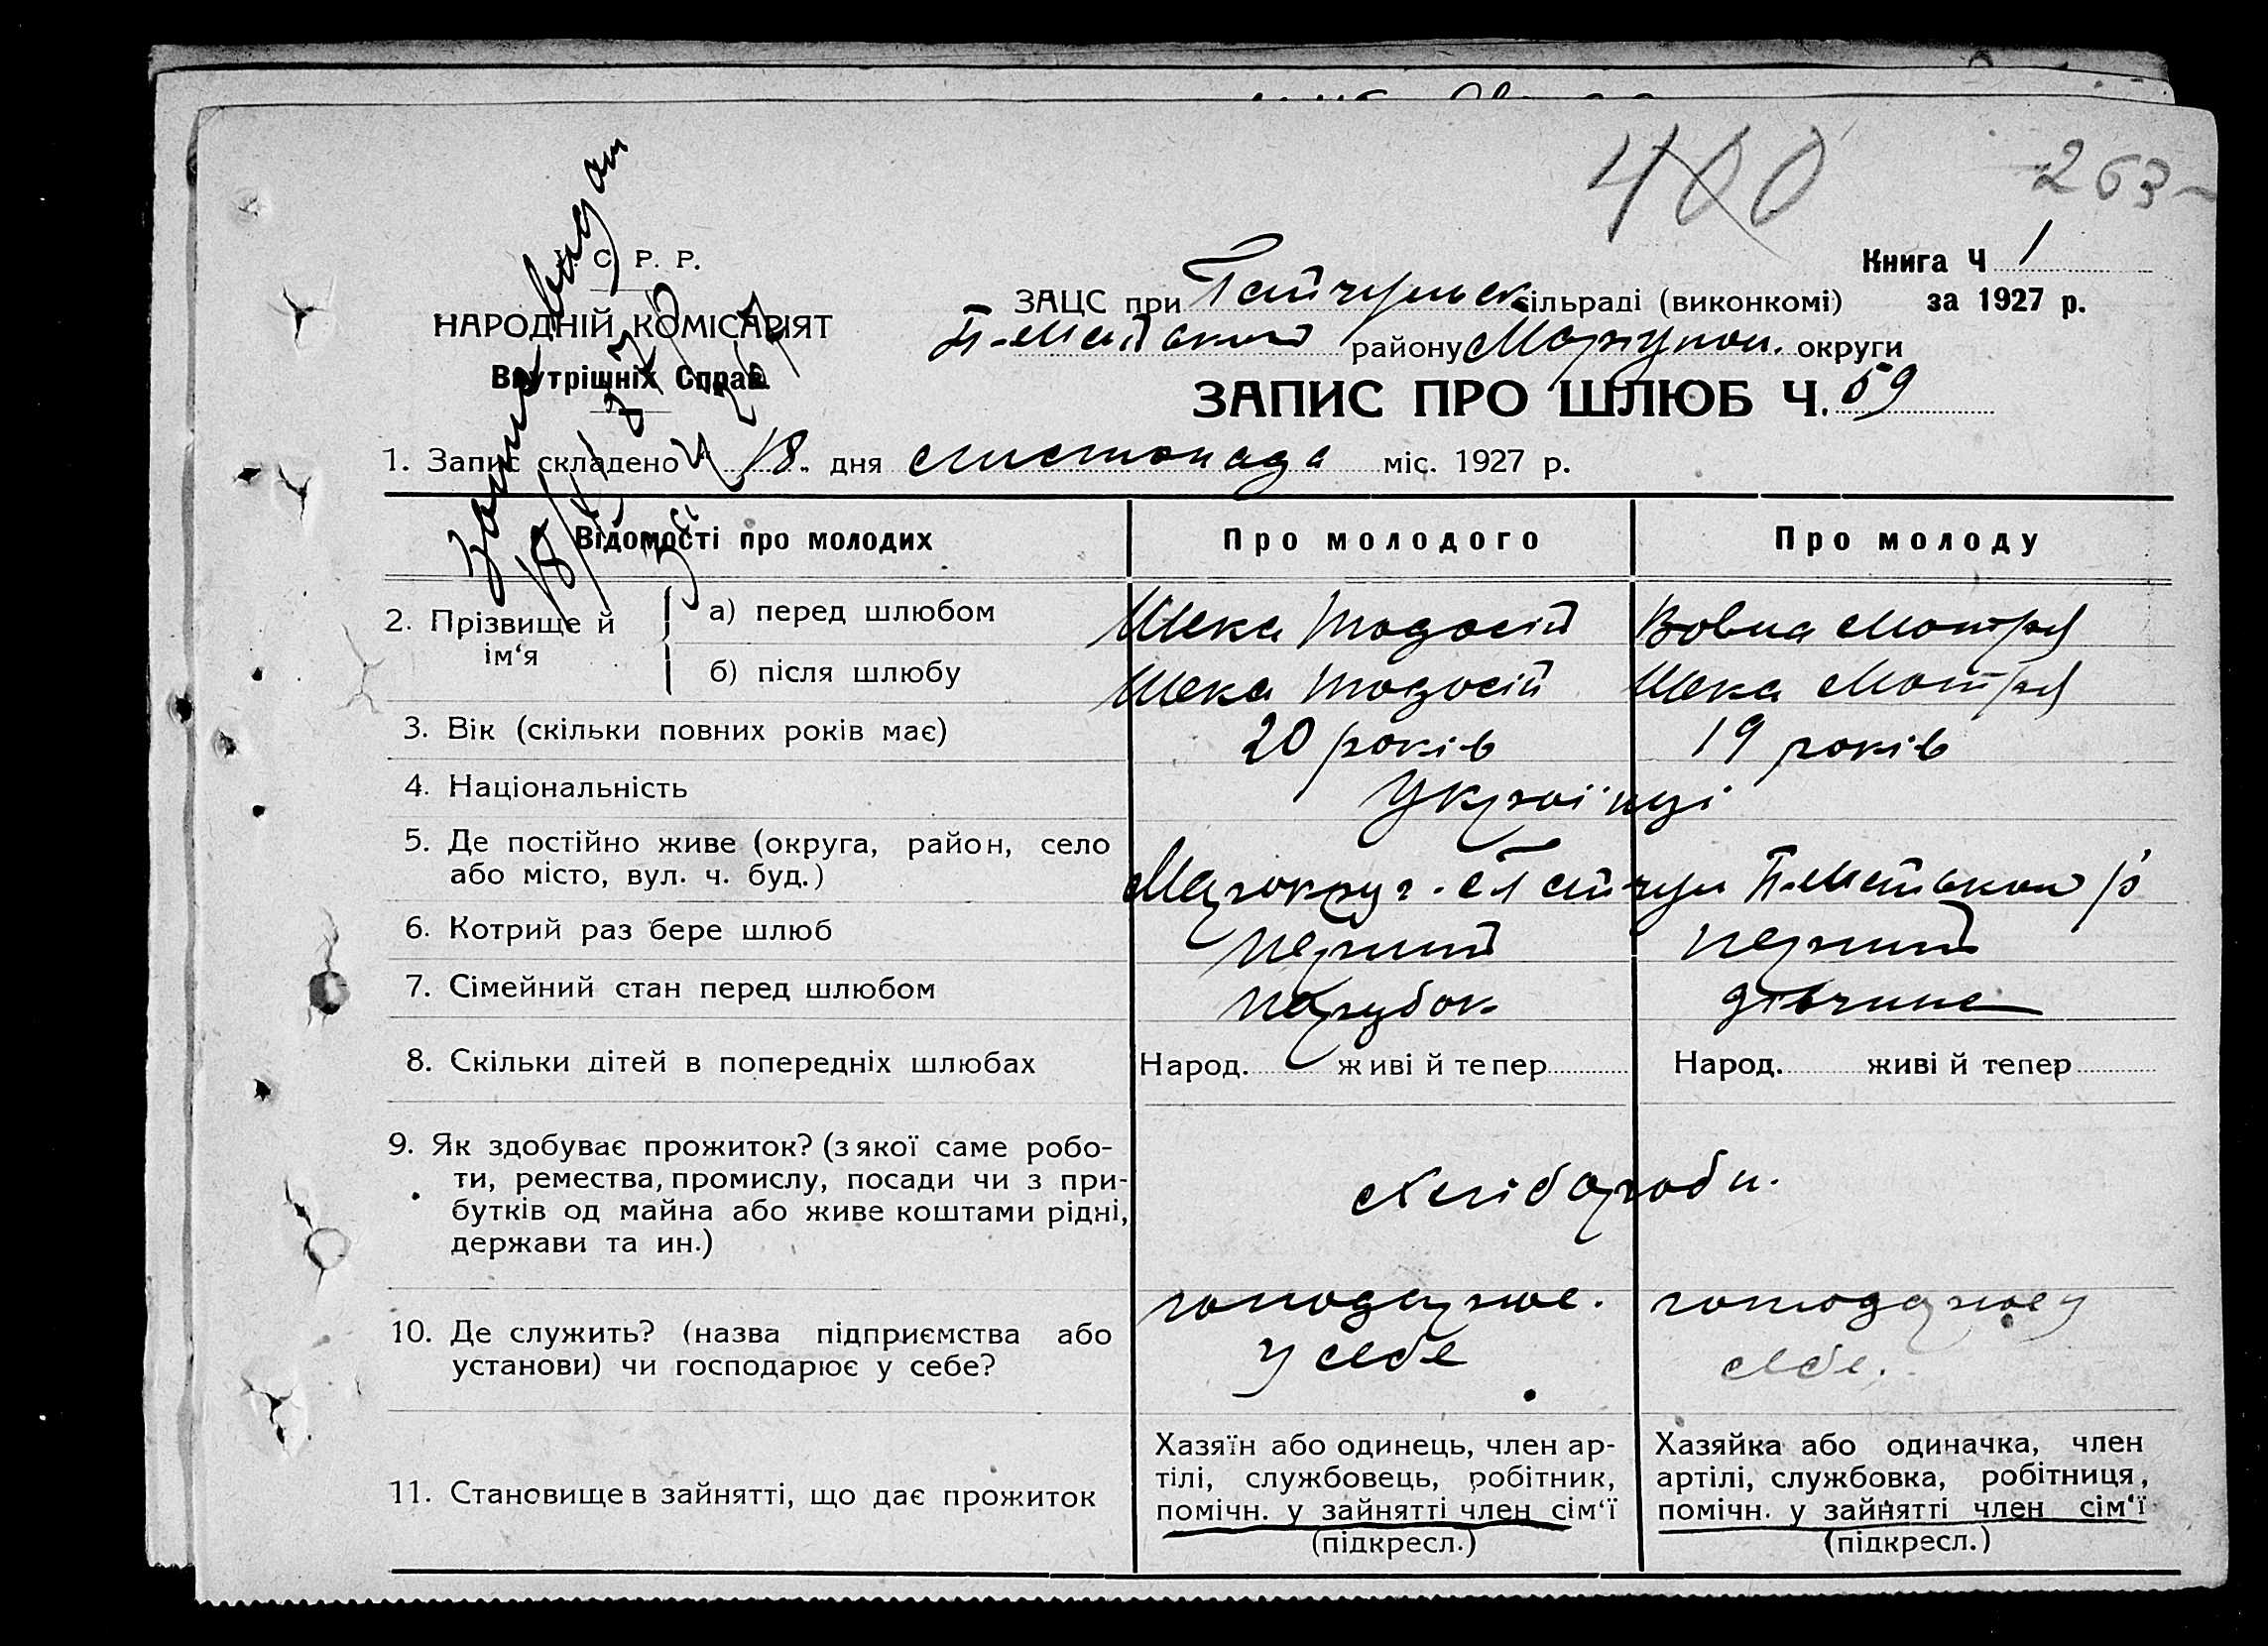 400 263
У. С. Р. Р.
НАРОДНІЙ КОМІСАРІЯТ
Внутрішніх Справ.
Книга Ч 1
за 1927 р.
ЗАЦС при Гайчульск. сільраді (виконкомі)
району Маріупол. округи
ЗАПИС ПРО ШЛЮБ Ч. 59
1. Запис складено „ 18 „ дня листопада міс. 1927 р.
Відомості про молодих Про молодого Про молоду
2. Прізвище й ім‘я
а) перед шлюбом Шека Тодосій Вовна Мотря
б) після шлюбу Шека Тодосій Шека Мотря
3. Вік (скільки повних років має) 20 років 19 років
4. Національність Україنці
5. Де постійно живе (округа, район, село
або місто, вул. ч. буд.)
6. Котрий раз бере шлюб перший перший
7. Сімейний стан перед шлюбом парубок дівчина
8. Скільки дітей в попередніх шлюбах Народ. живі й тепер Народ. живі й тепер
9. Як здобуває прожиток? (з якої саме робо-
ти, ремества, промислу, посади чи з при-
бутків од майна або живе коштами рідні,
держави та ин.)
Хлібороби.
10. Де служить? (назва підприємства або
установи) чи господарює у себе?
господарює.
у себе
господарює у
себе.
11. Становище в зайнятті, що дає прожиток
Хазяїн або одинець, член ар-
тілі, службовець, робітник,
помічн. у зайнятті член сім‘ї
(підкресл.)
Хазяйка або одиначка, член
артілі, службовка, робітниця,
помічн. у зайнятті член сім‘ї
(підкресл.)